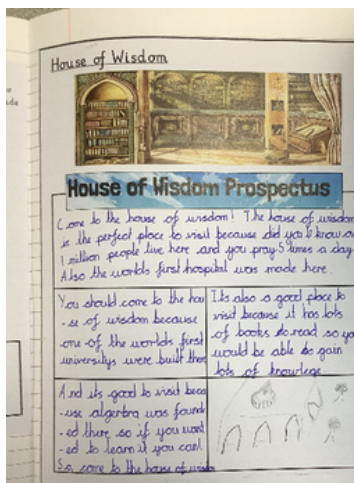 House of Wisdom
House of Wisdom Prospectus
Come to the house of wisdom! The house of wisdom
is the perfect place to visit because did you know over
1 million people live here and you pray 5 times a day.
Also the worlds first hospital was made here.
You should come to the hou
-se of wisdom because
one of the worlds first
universitys were built there
Its also a good place to
visit because it has lots
of books to read so you
would be able to gain
lots of knowlege
And its good to visit beca
-use algerbra was found
-ed there so if you want
-ed to learn it you can!
So, come to the house of wisdom